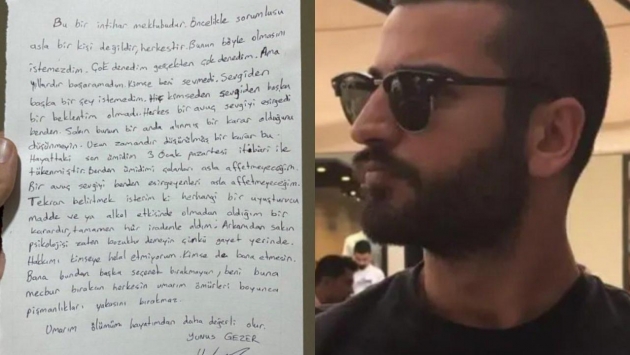 Bu bir intihar mektubudur. Öncelikle sorumlusu
asla bir kişi değildir, herkestir. Bunun böyle olmasını
istemezdim. Çok denedim gerçekten çok denedim. Ama
yıllardır başaramadım. Kimse beni sevmedi. Sevgiden
başka bir şey istemedim. Hiç kimseden sevgiden başka
bir beklentim olmadı. Herkes bir avuç sevgiyi esirgedi
benden. Sakın bunun bir anda alınmış bir karar olduğunu
düşünmeyin. Uzun zamandır düşünülmüş bir karar bu.
Hayattaki son ümidim 3 Ocak pazartesi itibari ile
tükenmiştir. Benden ümidimi çalanları asla affetmeyeceğim.
Bir avuç sevgiyi benden esirgeyenleri asla affetmeyeceğim.
Tekrar belirtmek isterim ki herhangi bir uyuşturucu
madde ve ya alkol etkisinde olmadan aldığım bir
karardır, tamamen hür irademle aldım. Arkamdan sakın
psikolojisi zaten bozuktu demeyin çünkü gayet yerinde.
Hakkımı kimseye helal etmiyorum. Kimse de bana etmesin.
Bana bundan başka seçenek bırakmayan, beni buna
mecbur bırakan herkesin umarım ömürleri boyunca
pişmanlıkları yakasını bırakmaz.
Umarım ölümüm hayatımdan daha değerli olur.
Yunus GEZER